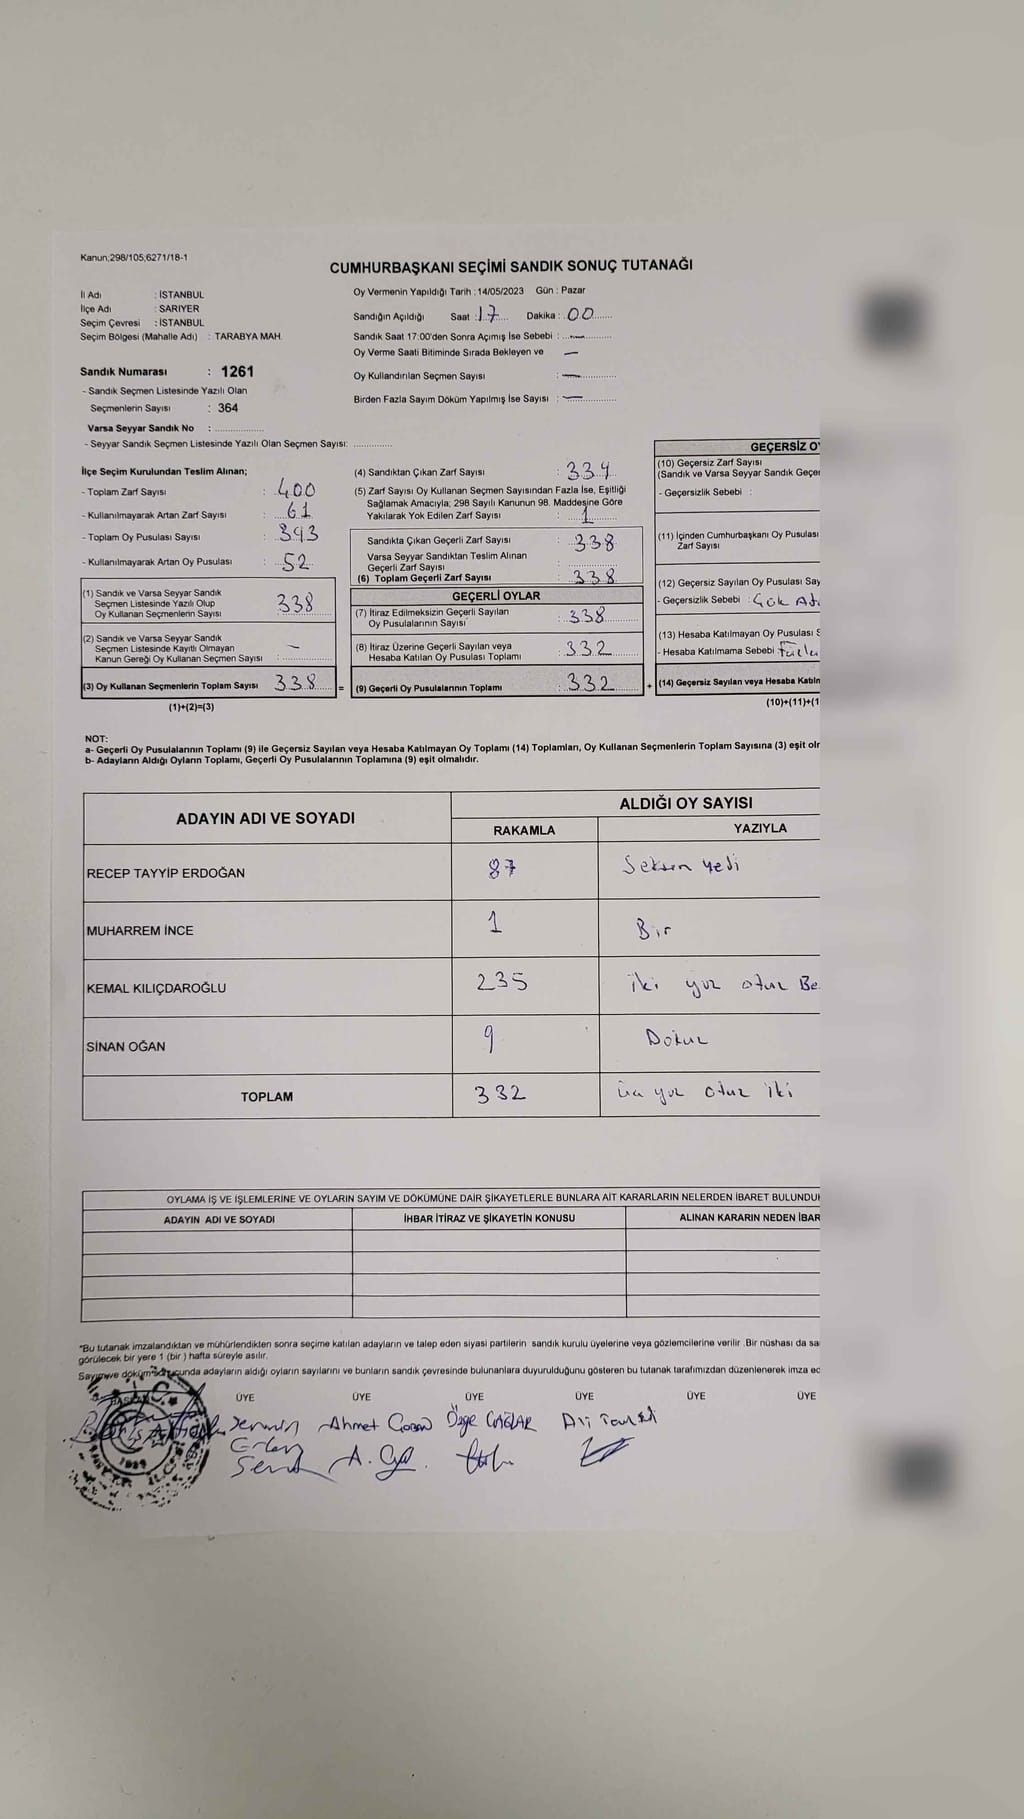 Kanun;298/105;6271/18-1
CUMHURBAŞKANI SEÇİMİ SANDIK SONUÇ TUTANAĞI
İl Adı : İSTANBUL
İlçe Adı : SARIYER
Seçim Çevresi : İSTANBUL
Seçim Bölgesi (Mahalle Adı) : TARABYA MAH.
Oy Vermenin Yapıldığı Tarih : 14/05/2023 Gün : Pazar
Sandığın Açıldığı Saat : 17 Dakika : 00
Sandık Saat 17:00'den Sonra Açımış İse Sebebi : —
Oy Verme Saati Bitiminde Sırada Bekleyen ve —
Oy Kullandırılan Seçmen Sayısı : —
Birden Fazla Sayım Döküm Yapılmış İse Sayısı : —
Sandık Numarası : 1261
- Sandık Seçmen Listesinde Yazılı Olan
Seçmenlerin Sayısı : 364
Varsa Seyyar Sandık No :
- Seyyar Sandık Seçmen Listesinde Yazılı Olan Seçmen Sayısı:
İlçe Seçim Kurulundan Teslim Alınan;
- Toplam Zarf Sayısı : 400
- Kullanılmayarak Artan Zarf Sayısı : 61
- Toplam Oy Pusulası Sayısı : 393
- Kullanılmayarak Artan Oy Pusulası : 52
(1) Sandık ve Varsa Seyyar Sandık
Seçmen Listesinde Yazılı Olup
Oy Kullanan Seçmenlerin Sayısı 338
(2) Sandık ve Varsa Seyyar Sandık
Seçmen Listesinde Kayıtlı Olmayan
Kanun Gereği Oy Kullanan Seçmen Sayısı : —
(3) Oy Kullanan Seçmenlerin Toplam Sayısı 338
(1)+(2)=(3)
(4) Sandıktan Çıkan Zarf Sayısı : 339
(5) Zarf Sayısı Oy Kullanan Seçmen Sayısından Fazla İse, Eşitliği
Sağlamak Amacıyla, 298 Sayılı Kanunun 98. Maddesine Göre
Yakılarak Yok Edilen Zarf Sayısı : 1
Sandıkta Çıkan Geçerli Zarf Sayısı : 338
Varsa Seyyar Sandıktan Teslim Alınan
Geçerli Zarf Sayısı
(6) Toplam Geçerli Zarf Sayısı : 338
GEÇERLİ OYLAR
(7) İtiraz Edilmeksizin Geçerli Sayılan
Oy Pusulalarının Sayısı : 338
(8) İtiraz Üzerine Geçerli Sayılan veya
Hesaba Katılan Oy Pusulası Toplamı : 332
= (9) Geçerli Oy Pusulalarının Toplamı : 332 +
GEÇERSİZ O
(10) Geçersiz Zarf Sayısı
(Sandık ve Varsa Seyyar Sandık Geçer
- Geçersizlik Sebebi :
(11) İçinden Cumhurbaşkanı Oy Pusulası
Zarf Sayısı
(12) Geçersiz Sayılan Oy Pusulası Say
- Geçersizlik Sebebi : Çok
(13) Hesaba Katılmayan Oy Pusulası S
- Hesaba Katılmama Sebebi
(14) Geçersiz Sayılan veya Hesaba Katılm
(10)+(11)+(1
NOT:
a- Geçerli Oy Pusulalarının Toplamı (9) ile Geçersiz Sayılan veya Hesaba Katılmayan Oy Toplamı (14) Toplamları, Oy Kullanan Seçmenlerin Toplam Sayısına (3) eşit olr
b- Adayların Aldığı Oyların Toplamı, Geçerli Oy Pusulalarının Toplamına (9) eşit olmalıdır.
ADAYIN ADI VE SOYADI
ALDIĞI OY SAYISI
RAKAMLA YAZIYLA
RECEP TAYYİP ERDOĞAN 87 Seksen yedi
MUHARREM İNCE 1 Bir
KEMAL KILIÇDAROĞLU 235 iki yüz otuz Be
SİNAN OĞAN 9 Dokuz
TOPLAM 332 üç yüz otuz iki
OYLAMA İŞ VE İŞLEMLERİNE VE OYLARIN SAYIM VE DÖKÜMÜNE DAİR ŞİKAYETLERLE BUNLARA AİT KARARLARIN NELERDEN İBARET BULUNDU
ADAYIN ADI VE SOYADI İHBAR İTİRAZ VE ŞİKAYETİN KONUSU ALINAN KARARIN NEDEN İBAR
*Bu tutanak imzalandıktan ve mühürlendikten sonra seçime katılan adayların ve talep eden siyasi partilerin sandık kurulu üyelerine veya gözlemcilerine verilir. Bir nüshası da sa
görülecek bir yere 1 (bir) hafta süreyle asılır.
Sayım ve döküm sonucunda adayların aldığı oyların sayılarını ve bunların sandık çevresinde bulunanlara duyurulduğunu gösteren bu tutanak tarafımızdan düzenlenerek imza ed
BAŞKAN ÜYE ÜYE ÜYE ÜYE ÜYE ÜYE
Ahmet Özge ÇAĞLAR Ali